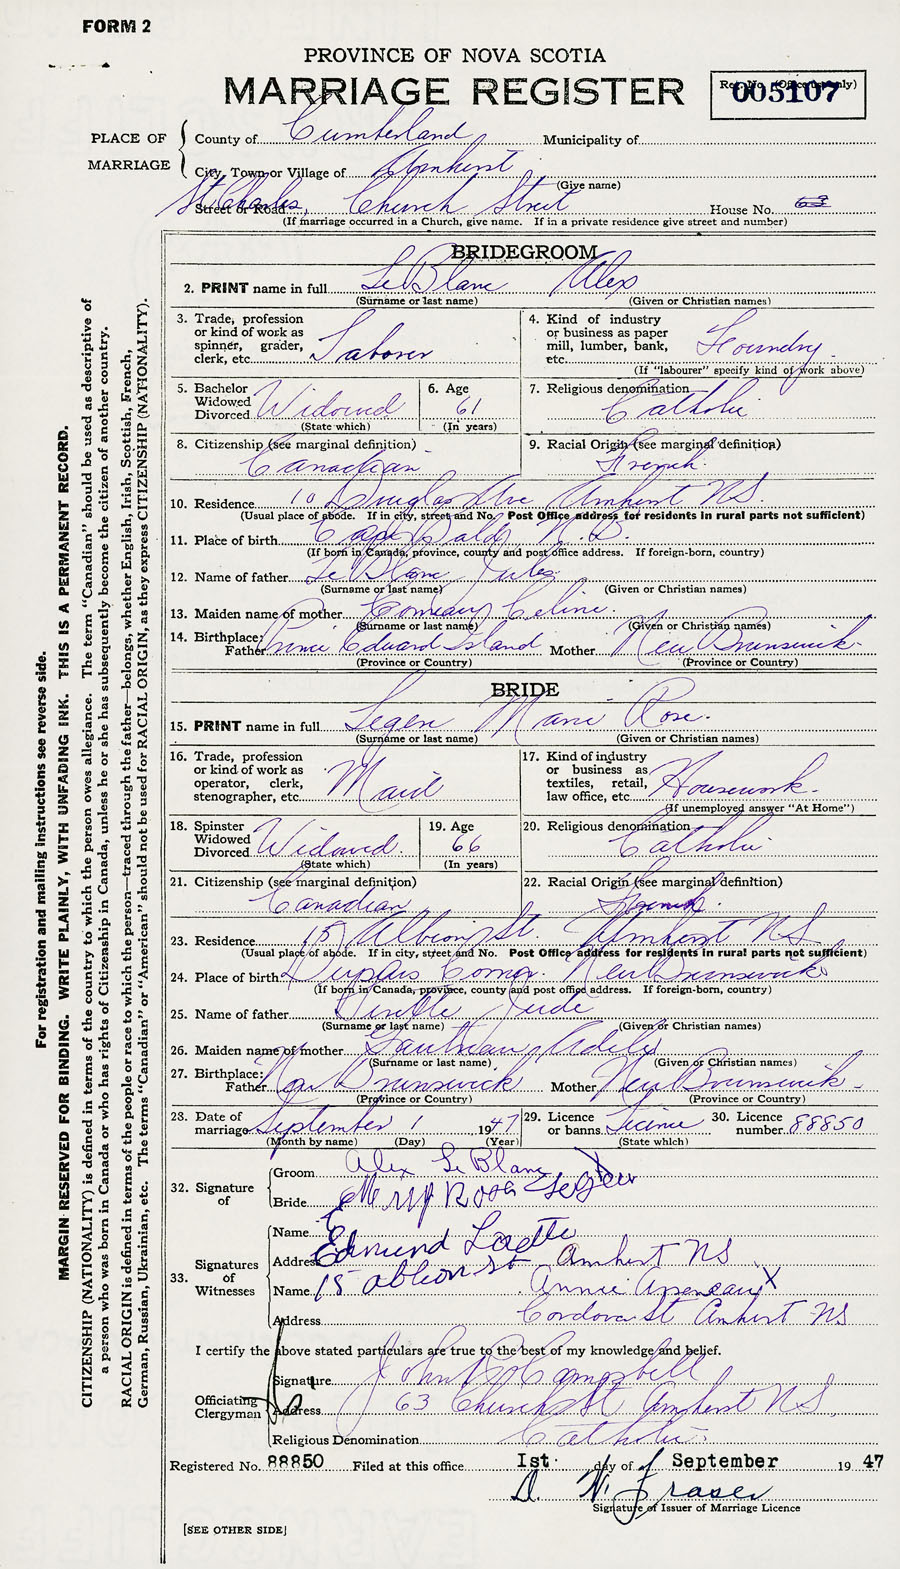 FORM 2
PROVINCE OF NOVA SCOTIA
MARRIAGE REGISTER
Reg. No. (Office use only)
005107
PLACE OF MARRIAGE
County of Cumberland Municipality of
City, Town or Village of Amherst
(Give name)
St. Charles, Church Street
Street or Road House No. 63
(If marriage occurred in a Church, give name. If in a private residence give street and number)
BRIDEGROOM
2. PRINT name in full LeBlanc Alex
(Surname or last name) (Given or Christian names)
3. Trade, profession or kind of work as spinner, grader, clerk, etc. Laborer
4. Kind of industry or business as paper mill, lumber, bank, etc. Foundry
(If "labourer" specify kind of work above)
5. Bachelor Widowed Divorced Widowed
(State which)
6. Age 61
(In years)
7. Religious denomination Catholic
8. Citizenship (see marginal definition) Canadian
9. Racial Origin (see marginal definition) French
10. Residence 10 Douglas Ave Amherst N.S.
(Usual place of abode. If in city, street and No. Post Office address for residents in rural parts not sufficient)
11. Place of birth Cape Bald N.B.
(If born in Canada, province, county and post office address. If foreign-born, country)
12. Name of father LeBlanc Jules
(Surname or last name) (Given or Christian names)
13. Maiden name of mother Comeau Celine.
(Surname or last name) (Given or Christian names)
14. Birthplace: Father Prince Edward Island Mother New Brunswick
(Province or Country) (Province or Country)
BRIDE
15. PRINT name in full Legere Marie Rose.
(Surname or last name) (Given or Christian names)
16. Trade, profession or kind of work as operator, clerk, stenographer, etc. Maid
17. Kind of industry or business as textiles, retail, law office, etc. Housework.
(If unemployed answer "At Home")
18. Spinster Widowed Divorced Widowed.
(State which)
19. Age 66
(In years)
20. Religious denomination Catholic
21. Citizenship (see marginal definition) Canadian
22. Racial Origin (see marginal definition) French.
23. Residence 15 Albion St. Amherst N.S.
(Usual place of abode. If in city, street and No. Post Office address for residents in rural parts not sufficient)
24. Place of birth Dupuis Corner. New Brunswick
(If born in Canada, province, county and post office address. If foreign-born, country)
25. Name of father Jude
(Surname or last name) (Given or Christian names)
26. Maiden name of mother Gautreau Adele
(Surname or last name) (Given or Christian names)
27. Birthplace: Father New Brunswick Mother New Brunswick
(Province or Country) (Province or Country)
28. Date of marriage September 1 1947
(Month by name) (Day) (Year)
29. Licence or banns Licence
(State which)
30. Licence number 88850
32. Signature of
Groom Alex LeBlanc
Bride
33. Signatures of Witnesses
Name Edmund
Address 15 Albion St Amherst NS
Name Annie Arseneau X
Address Cordova St Amherst NS
I certify the above stated particulars are true to the best of my knowledge and belief.
Officiating Clergyman
Signature John Campbell
Address 63 Church St Amherst N.S.
Religious Denomination Catholic
Registered No. 88850 Filed at this office 1st. day of September 1947
D. W. Fraser
Signature of Issuer of Marriage Licence
[SEE OTHER SIDE]
For registration and mailing instructions see reverse side.
MARGIN RESERVED FOR BINDING. WRITE PLAINLY, WITH UNFADING INK. THIS IS A PERMANENT RECORD.
CITIZENSHIP (NATIONALITY) is defined in terms of the country to which the person owes allegiance. The term "Canadian" should be used as descriptive of
a person who was born in Canada or who has rights of Citizenship in Canada, unless he or she has subsequently become the citizen of another country.
RACIAL ORIGIN is defined in terms of the people or race to which the person—traced through the father—belongs, whether English, Irish, Scottish, French,
German, Russian, Ukrainian, etc. The terms "Canadian" or "American" should not be used for RACIAL ORIGIN, as they express CITIZENSHIP (NATIONALITY).